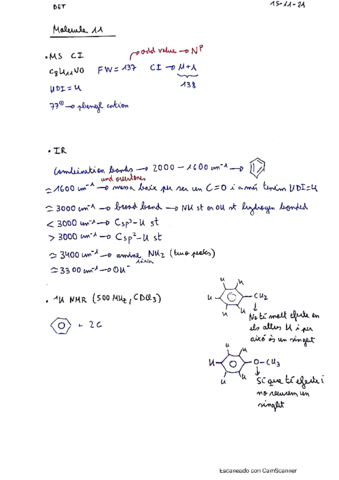 DET
15-11-21
Molecule 11
• MS CI
odd value → Nº
C8H11NO FW = 137 CI → M+1
138
UDI = 4
77⊕ → phenyl cation
• IR
Combination bands → 2000 - 1600 cm⁻¹ →
and overtones
≃ 1600 cm⁻¹ → massa baix per ser un C=O i a més tenim UDI=4
≃ 3000 cm⁻¹ → broad band → NH st or OH st hydrogen bonded
< 3000 cm⁻¹ → Csp³-H st
> 3000 cm⁻¹ → Csp²-H st
≃ 3400 cm⁻¹ → amine NH2 (two peaks)
≃ 3300 cm⁻¹ → OH
• 1H NMR (500 MHz, CDCl3)
+ 2C
H H
C CH2
H H H
No té molt efecte en
els altres H i per
això és un singlet
H H
C O-CH3
H H H
Sí que té efecte i
no veuríem un
singlet
Escaneado con CamScanner